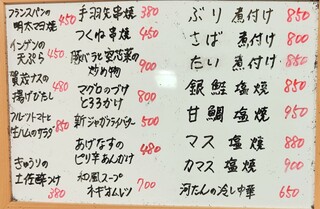 フランスパンの
明太マヨ焼 450
インゲンの
天ぷら 450
賀茂ナスの
揚げびたし 480
フルーツトマトと
生ハムのサラダ 850
きゅうりの
土佐酢つけ
380
手羽先串焼 380
つくね串焼 450
豚バラと空芯菜の
炒め物 900
マグロのづけ
とろろかけ 800
新ジャガフライバター 500
あげなすの
ピリ辛あんかけ 480
和風スープ
ネギオムレツ 700
ぶり煮付け 850
さば煮付け 800
たい煮付け 850
銀鮭塩焼 850
甘鯛塩焼 950
マス塩焼 880
カマス塩焼 900
河たんの冷し中華 650